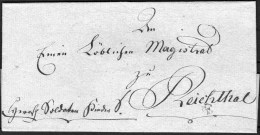 An
Einen Löblichen Magistrat
zu
Reichthal
Soldaten